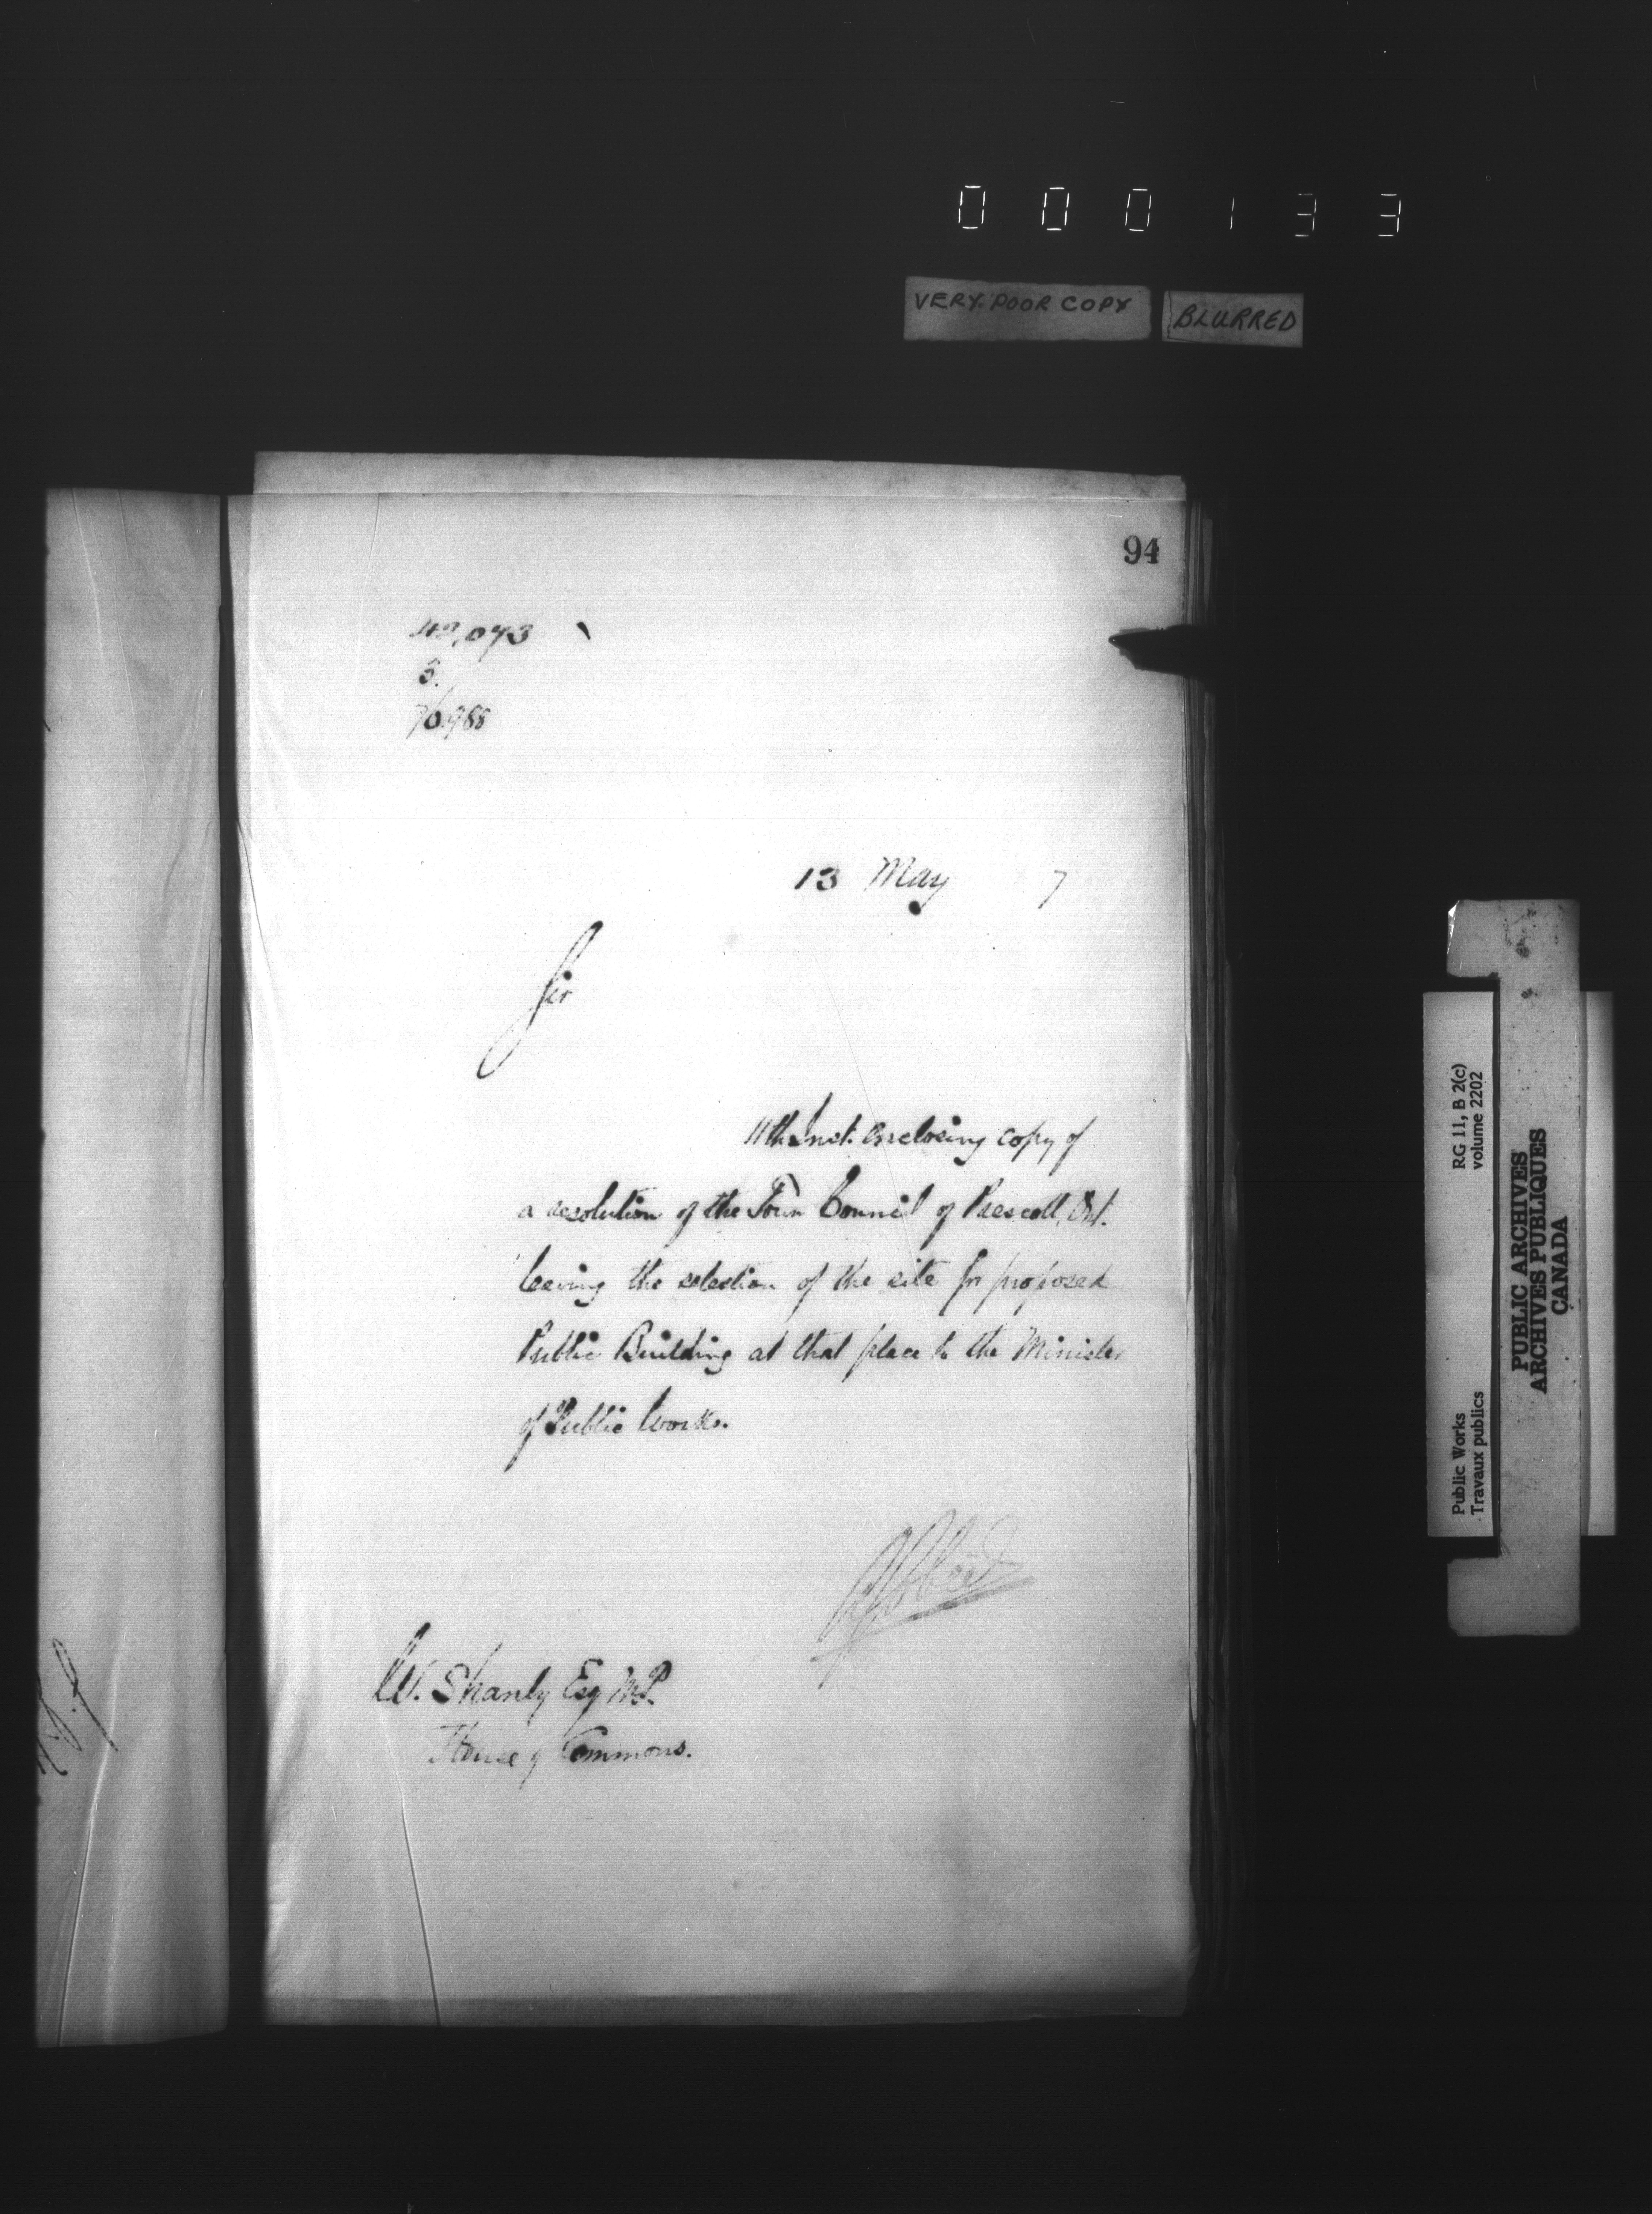 000133
VERY POOR COPY
BLURRED
94
5.
13 May 7
Sir
11th Inst. enclosing copy of
a resolution of the Town Council of Prescott, Ont.
leaving the selection of the site for proposed
Public Building at that place to the Minister
of Public Works.
W. Shanly Esq M.P.
House of Commons.
RG 11, B 2(c)
volume 2202
Public Works
Travaux publics
PUBLIC ARCHIVES
ARCHIVES PUBLIQUES
CANADA